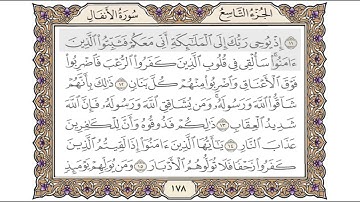 الجزء التاسع سورة الأنفال
إِذْ يُوحِى رَبُّكَ إِلَى ٱلْمَلَـٰٓئِكَةِ أَنِّى مَعَكُمْ فَثَبِّتُوا۟ ٱلَّذِينَ
ءَامَنُوا۟ سَأُلْقِى فِى قُلُوبِ ٱلَّذِينَ كَفَرُوا۟ ٱلرُّعْبَ فَٱضْرِبُوا۟
فَوْقَ ٱلْأَعْنَاقِ وَٱضْرِبُوا۟ مِنْهُمْ كُلَّ بَنَانٍ ١٢ ذَٰلِكَ بِأَنَّهُمْ
شَآقُّوا۟ ٱللَّهَ وَرَسُولَهُۥ وَمَن يُشَاقِقِ ٱللَّهَ وَرَسُولَهُۥ فَإِنَّ ٱللَّهَ
شَدِيدُ ٱلْعِقَابِ ١٣ ذَٰلِكُمْ فَذُوقُوهُ وَأَنَّ لِلْكَـٰفِرِينَ
عَذَابَ ٱلنَّارِ ١٤ يَـٰٓأَيُّهَا ٱلَّذِينَ ءَامَنُوٓا۟ إِذَا لَقِيتُمُ ٱلَّذِينَ
كَفَرُوا۟ زَحْفًا فَلَا تُوَلُّوهُمُ ٱلْأَدْبَارَ ١٥ وَمَن يُوَلِّهِمْ يَوْمَئِذٍ
١٧٨